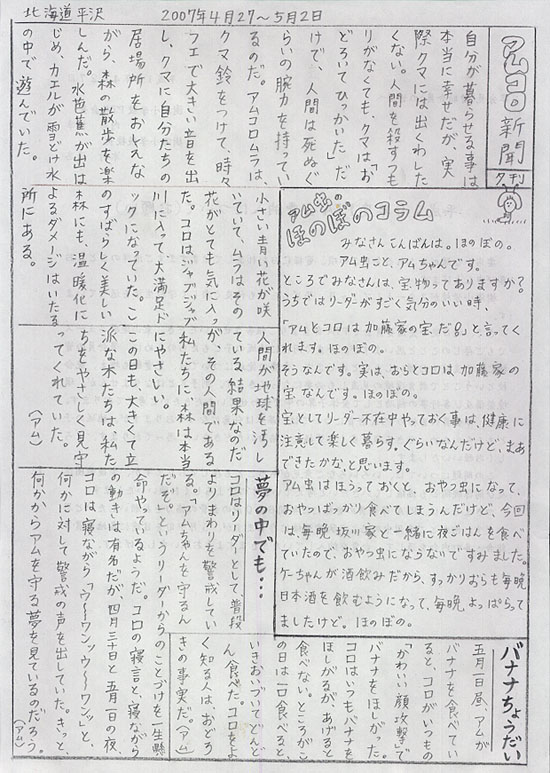 北海道平沢　2007年4月27〜5月2日
アムコロ新聞
夕刊
自分が暮らせる事は
本当に幸せだが、実
際クマには出くわした
くない。人間を殺すつも
りがなくても、クマは「お
どろいてひっかいた」だ
けで、人間は死ぬぐ
らいの腕力を持ってい
るのだ。アムコロムラは、
クマ鈴をつけて、時々
フエで大きい音を出
し、クマに自分たちの
居場所をおしえな
がら、森の散歩を楽
しんだ。水芭蕉が出は
じめ、カエルが雪どけ水
の中で遊んでいた。
小さい青い花が咲
いていて、ムラはその
花がとても気に入っ
た。コロはジャブジャブ
川に入って大満足ド
ックになっていた。こ
のすばらしく美しい
森にも、温暖化に
よるダメージはいたる
所にある。
人間が地球を汚し
ている結果なのだ
が、その人間である
私たちに、森は本当
にやさしい。
この日も、大きくて立
派な木たちは私た
ちをやさしく見守
ってくれていた。
（アム）
アム虫の
ほのぼのコラム
みなさんこんばんは。ほのぼの。
アム虫こと、アムちゃんです。
ところでみなさんは、宝物ってありますか？
うちではリーダーがすごく気分のいい時、
「アムとコロは加藤家の宝だ！」と言ってく
れます。ほのぼの。
そうなんです。実は、おらとコロは加藤家の
宝なんです。ほのぼの。
宝としてリーダー不在中やっておく事は、健康に
注意して楽しく暮らす。ぐらいなんだけど、まあ
できたかな、と思います。
アム虫はほうっておくと、おやつ虫になって、
おやつばっかり食べてしまうんだけど、今回
は、毎晩坂川家と一緒に夜ごはんを食べ
ていたので、おやつ虫にならないですみました。
ケーちゃんが酒飲みだから、すっかりおらも毎晩
日本酒を飲むようになって、毎晩、よっぱらって
ましたけど。ほのぼの。
夢の中でも…
コロはリーダーとして普段
よりまわりを警戒してい
る。「アムちゃんを守るん
だぞ。」というリーダーからのことづけを一生懸
命やっているようだ。コロの寝言と、寝ながら
の動きは有名だが、四月三十日と五月一日の夜、
コロは寝ながら「ウ〜ワンッウ〜ワンッ」と、
何かに対して警戒の声を出していた。きっと、
何かからアムを守る夢を見ているのだろう。
（アム）
バナナちょうだい
五月一日昼、アムが
バナナを食べてい
ると、コロがいつもの
「かわいい顔攻撃」で
バナナをほしがった。
コロはいつもバナナを
ほしがるが、あげると
食べない。ところがこ
の日は一口食べると、
いきおいづいてどんど
ん食べた。コロをよ
く知る人は、おどろ
きの事実だ。（アム）